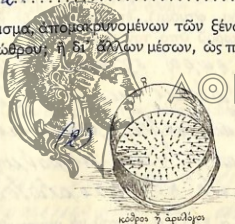 ισμα, ἀπομακρυνομένων τῶν ξένω
κώθρου; ἢ δι' ἄλλων μέσων, ὡς π
ΑΘ
κόθρος ἢ ἀρυλόγος